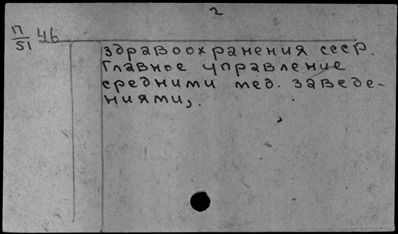 2
П/51 46
здравоохранения СССР.
Главное управление
средними мед. заведе-
ниями,.